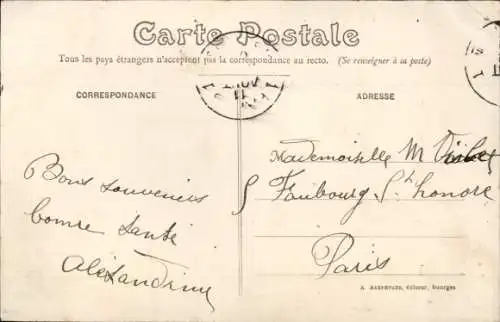 Carte Postale
Tous les pays étrangers n'acceptent pas la correspondance au recto. (Se renseigner à sa poste)
CORRESPONDANCE
ADRESSE
Mademoiselle M
5 Faubourg St honore
Paris
Bons souvenirs
bonne santé
Alexandrine
A. AUXENFANS, éditeur, Bourges